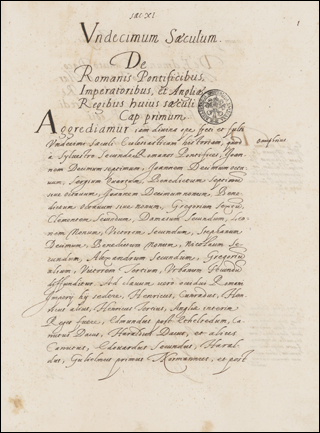 sæc XI
1
Vndecimum Sæculum.
De
Romanis Pontificibus,
Imperatoribus, et Angliæ
Regibus huius sæculi
Cap primum
Aggrediamur iam divina ope freti et fulti
Vndecimi sæculi Ecclesiasticam historiam, quod
a Sylvestro Secundo Romano Pontifice, Joan-
nem Decimum septimum, Joannem Decimum octa-
uum, Sergium Quartum, Benedictum Septimum
siue octauum, Joannem Decimum nonum, Bene-
dictum octauum siue nonum, Gregorium Sextum,
Clementem Secundum, Damasum Secundum, Leo-
nem Nonum, Victorem Secundum, Stephanum
Decimum, Benedictum Nonum, Nicolaum Se-
cundum, Alexandrum Secundum, Gregorium
Victorem Tertium, Vrbanum Secundum
Ad clauum uero
Imperij hy sedere, Henricus, Cunradus, Hen-
ricus alius, Henricus Tertius, Angliæ interim
Reges fuere, Edmundus post Ethelredum, Ca-
nutus Dacus, Haraldus Dacus, et alius
Canutus, Edouardus Secundus, Haral-
dus, Gulielmus primus Normannus, et post